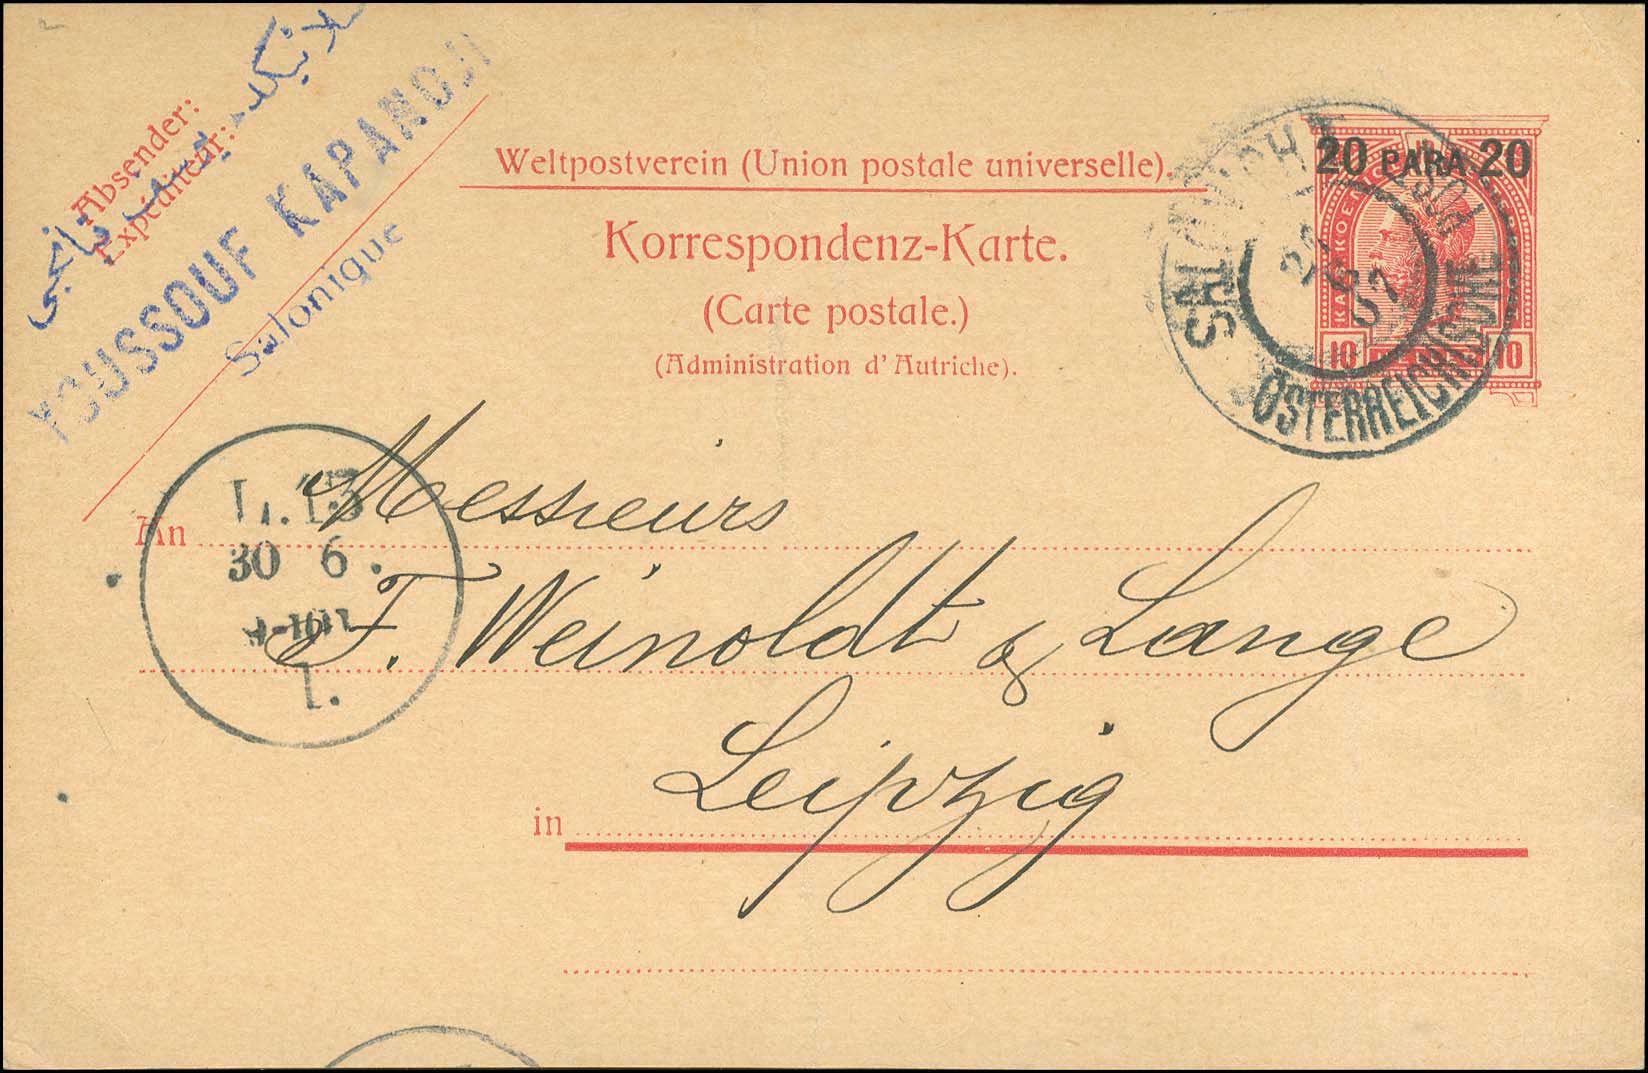 سلانيكده يوسف قپانجى
Absender:
Expéditeur:
YOUSSOUF KAPANDJI
Salonique
Weltpostverein (Union postale universelle).
Korrespondenz-Karte.
(Carte postale.)
(Administration d'Autriche).
20 PARA 20
10 10
ÖSTERREICHISCHE POST
07
L. 13
30 6.
1.
An Messieurs
F. Weinoldt & Lange
in Leipzig